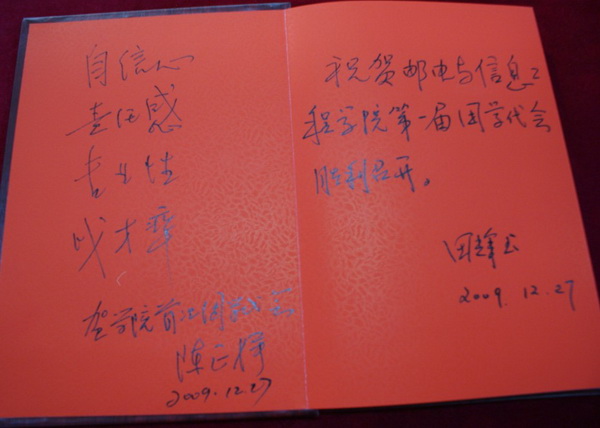 自信心
责任感
专业性
成才率
贺学院首
陈正
2009.12.27
祝贺邮电与信息工
程学院第一届团学代会
胜利召开。
2009.12.27